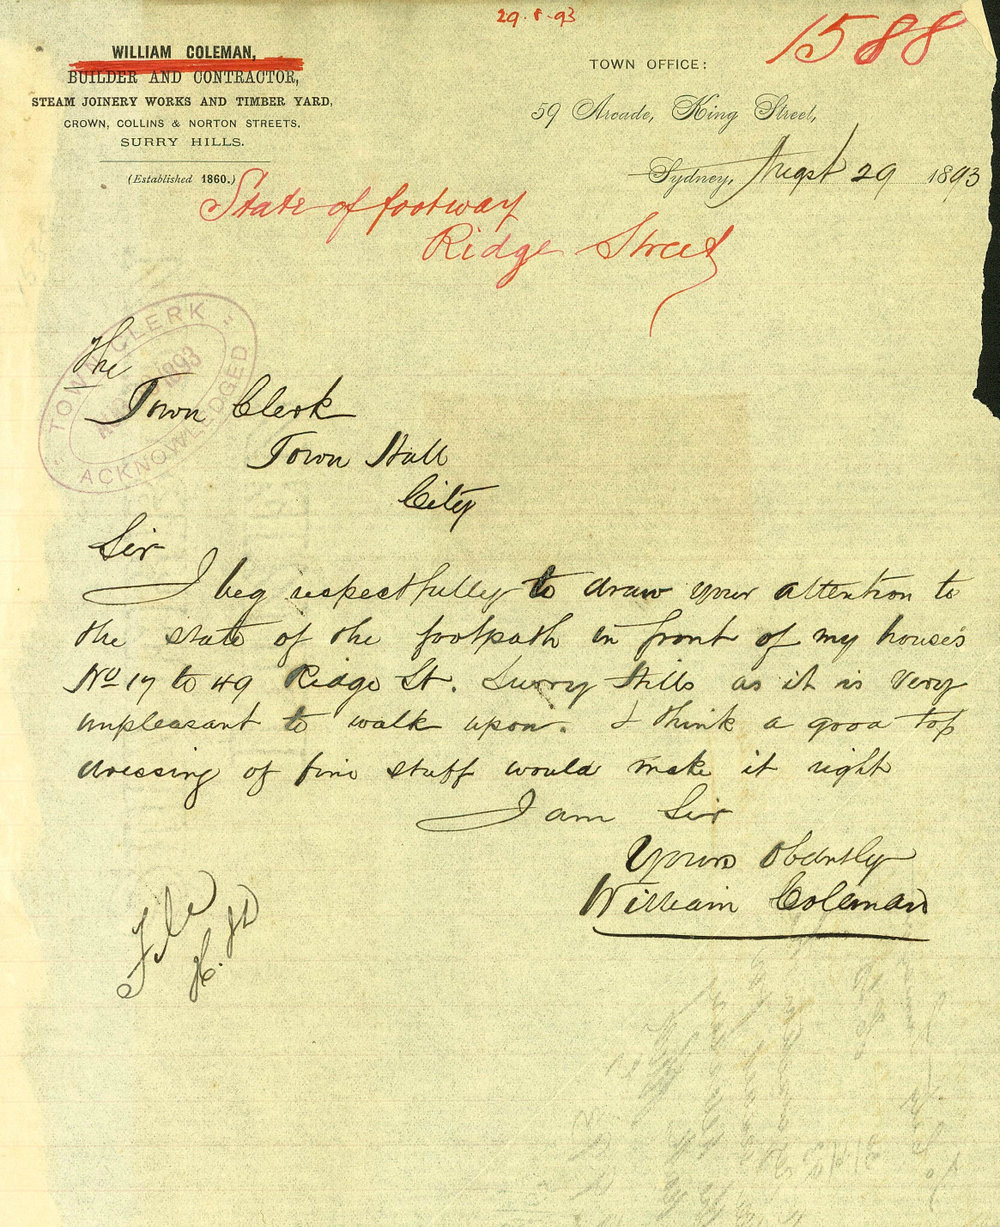 29.8.93
1588
WILLIAM COLEMAN,
BUILDER AND CONTRACTOR,
STEAM JOINERY WORKS AND TIMBER YARD,
CROWN, COLLINS & NORTON STREETS,
SURRY HILLS.
(Established 1860.)
TOWN OFFICE:
59 Arcade, King Street,
Sydney, Augst 29 1893
State of footway
Ridge Street
TOWN CLERK
1893
ACKNOWLEDGED
The
Town Clerk
Town Hall
City
Sir
I beg respectfully to draw your attention to
the state of the footpath in front of my house's
No 17 to 49 Ridge St. Surry Hills as it is very
unpleasant to walk upon. I think a good top
dressing of fine stuff would make it right
I am Sir
Yours Obdntly
William Coleman
File